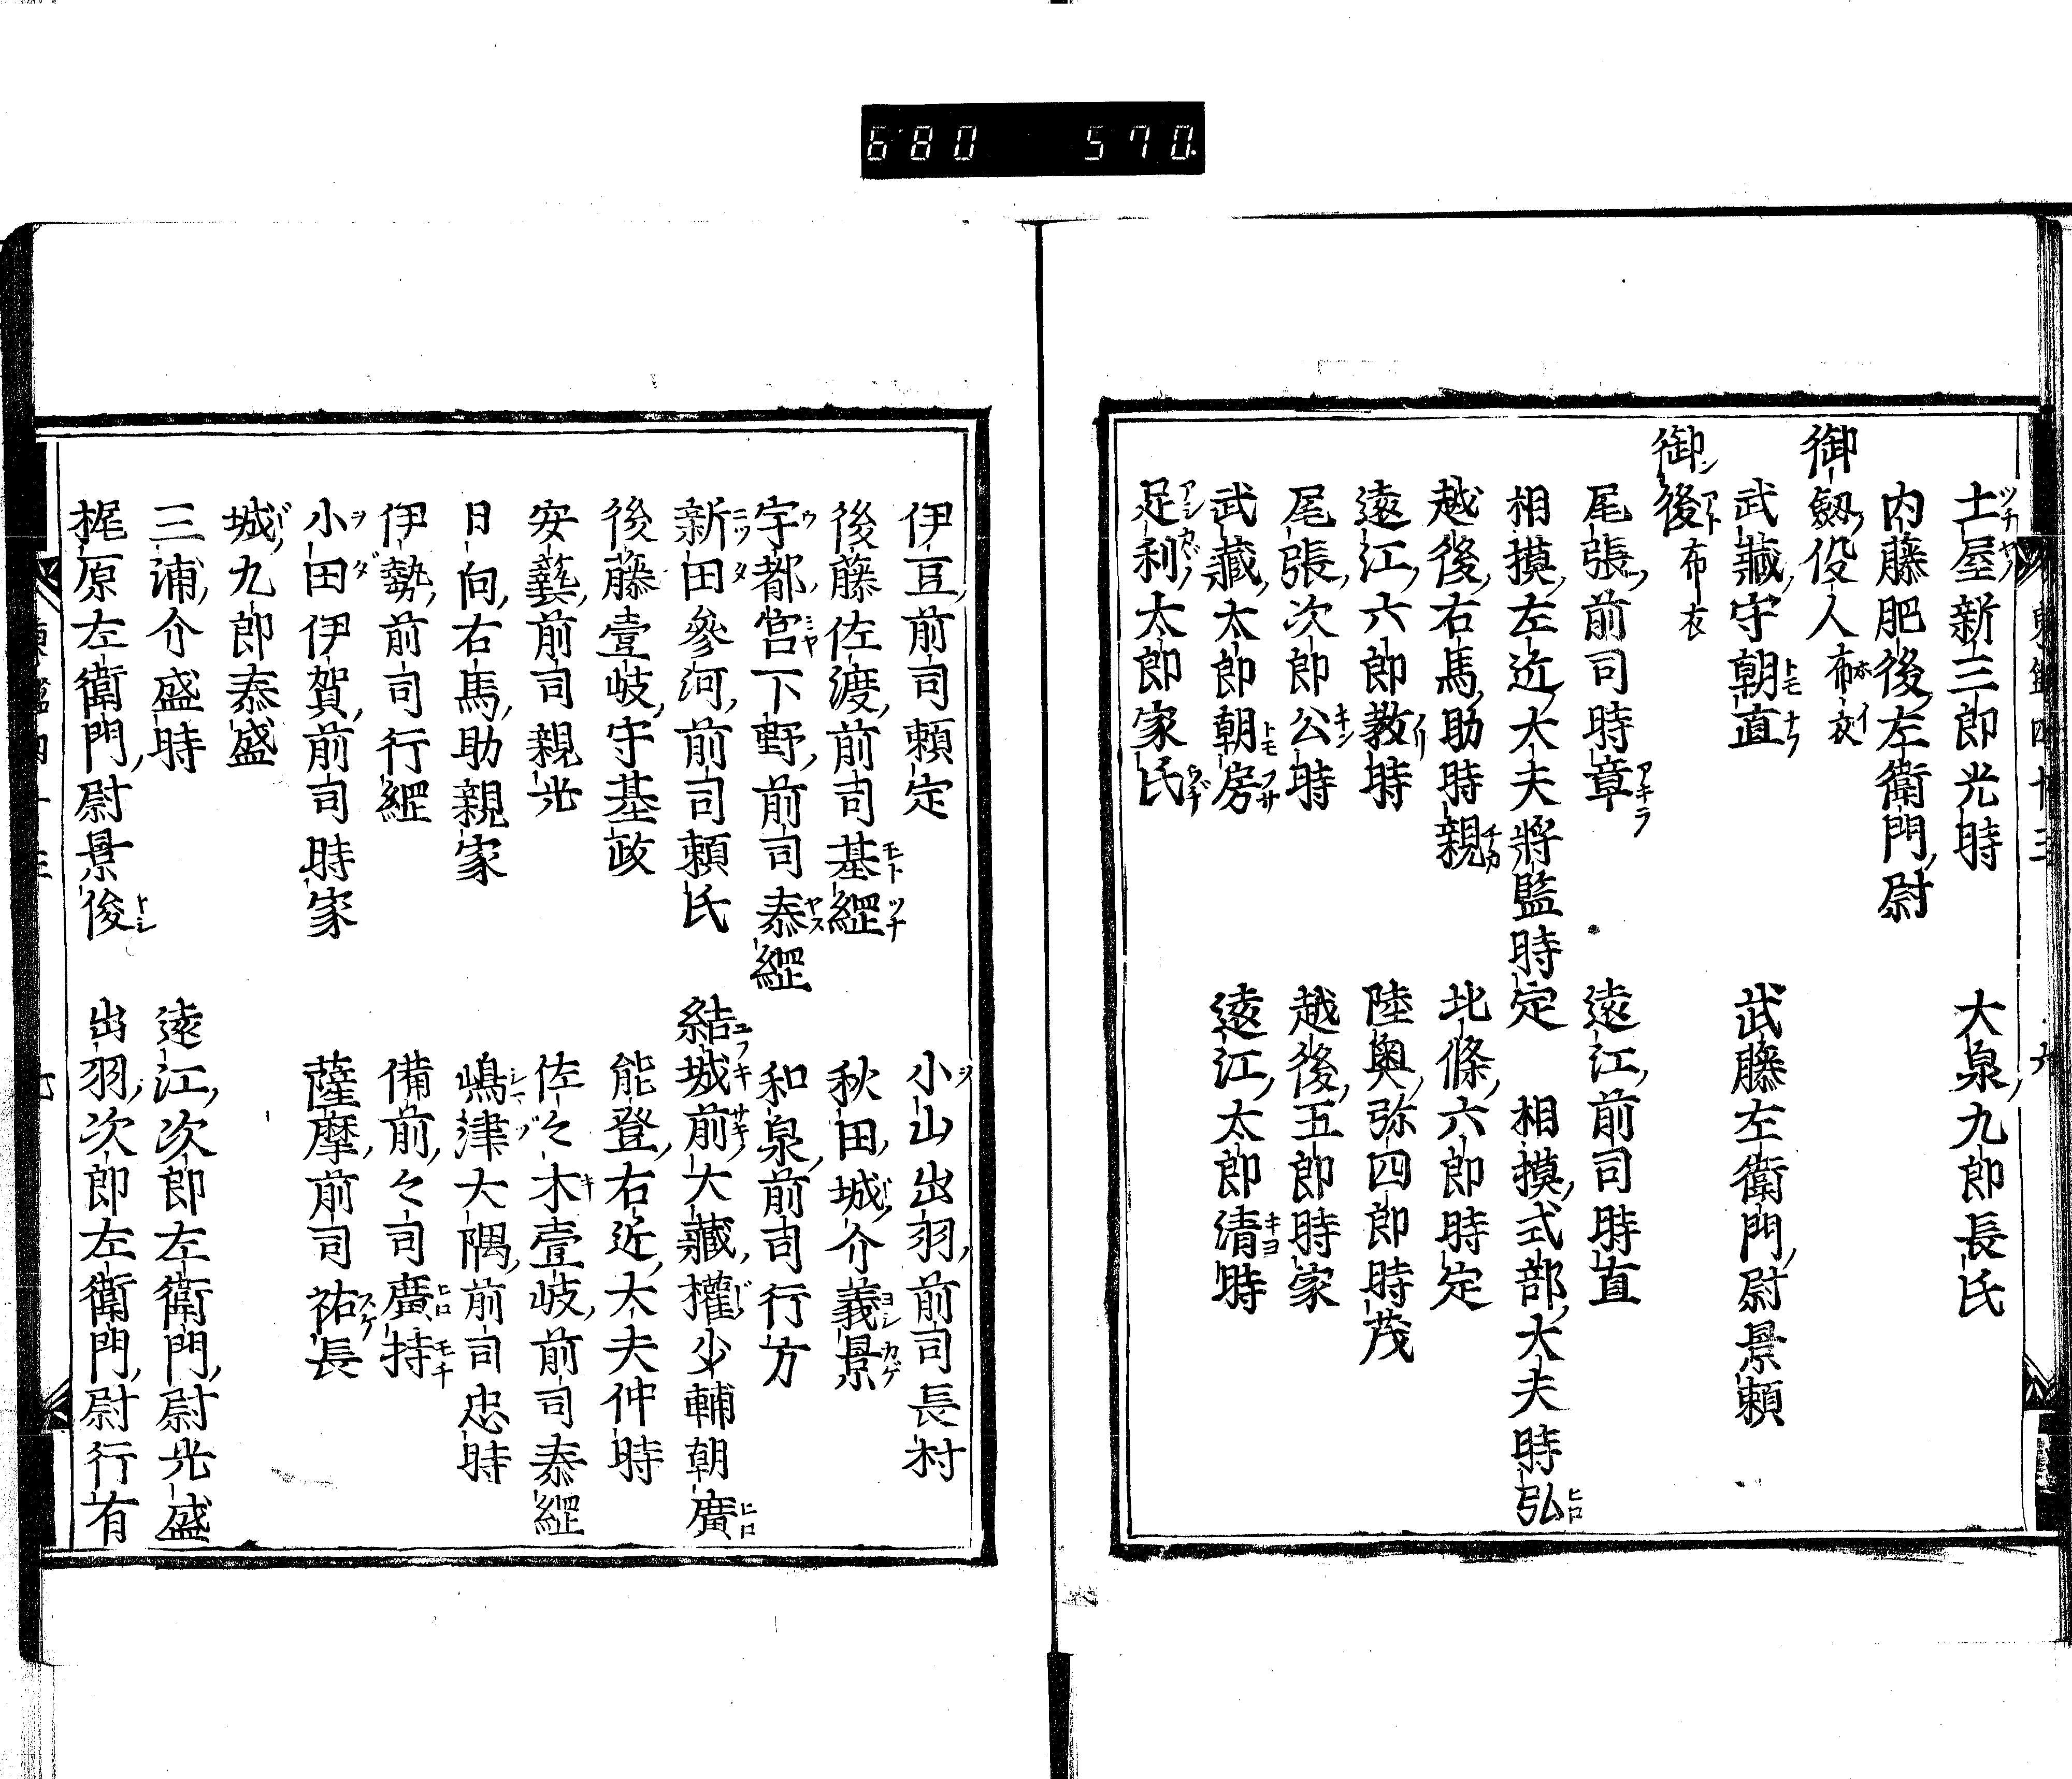 680 570.
土屋新三郎光時 大泉九郎長氏
内藤肥後左衛門尉
御劔役人布衣
武藏守朝直 武藤左衛門尉景頼
御後布衣
尾張前司時章 遠江前司時直
相摸左近大夫將監時定 相摸式部大夫時弘
越後右馬助時親 北條六郎時定
遠江六郎教時 陸奥弥四郎時茂
尾張次郎公時 越後五郎時家
武藏太郎朝房 遠江太郎清時
足利太郎家氏
伊豆前司頼定 小山出羽前司長村
後藤佐渡前司基經 秋田城介義景
宇都宮下野前司泰經 和泉前司行方
新田參河前司頼氏 結城前大藏權少輔朝廣
後藤壹岐守基政 能登右近大夫仲時
安藝前司親光 佐々木壹岐前司泰經
日向右馬助親家 嶋津大隅前司忠時
伊勢前司行經 備前々司廣持
小田伊賀前司時家 薩摩前司祐長
城九郎泰盛
三浦介盛時 遠江次郎左衛門尉光盛
梶原左衛門尉景俊 出羽次郎左衛門尉行有